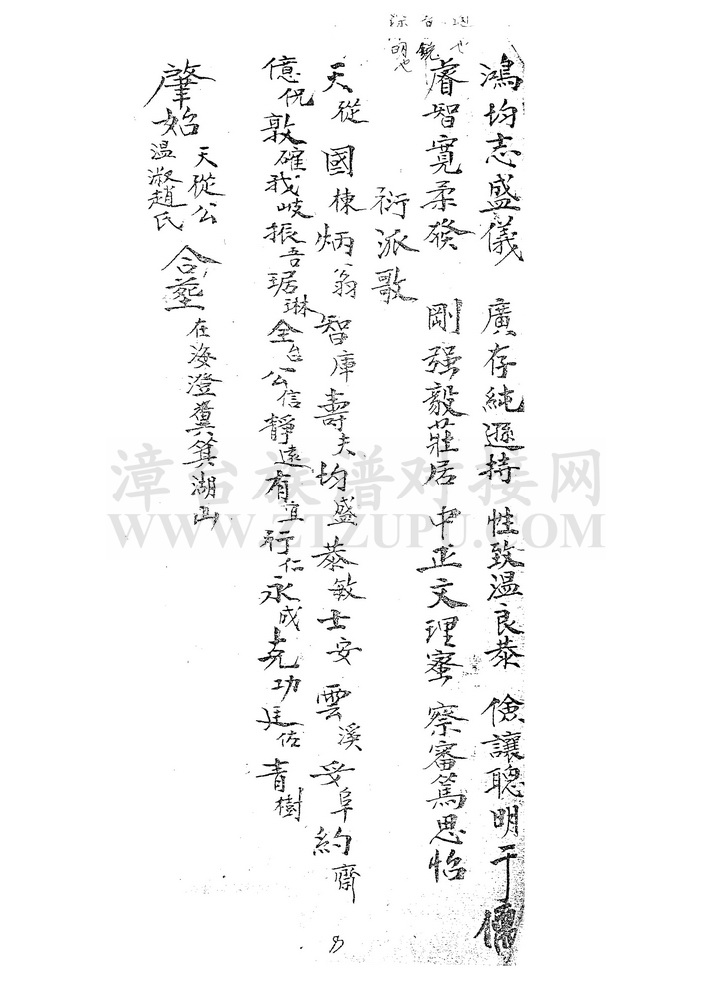 鴻均志盛儀 廣存純遜持 性致溫良恭 儉讓聰明干
睿智寬柔發 剛强毅莊居 中正文理密 察審篤思怡
衍派歌
天從 國棟 炳翁 智庫 壽夫 均盛 恭敏 士安 雲溪 安阜 約齋
億侃 敦確 我岐 振吾 琚琳 全台 公信 靜遠 有宜 行仁 永成 克功 廷佐 青樹
肇始 天從公 溫淑趙氏 合塋 在海澄糞箕湖山
漳台族谱对接网
WWW.ZTZUPU.COM